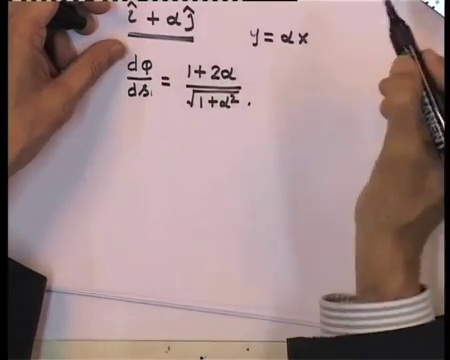 î + αĵ
y = αx
dφ/ds = (1 + 2α)/√(1 + α²).